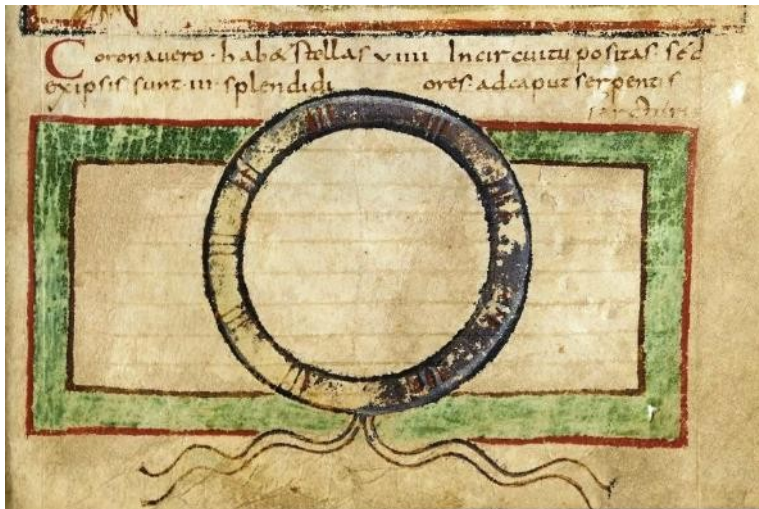 Corona uero · habet stellas viiii Incircuitu positas sed
exipsis sunt · iii · splendidi ores · adcaput serpentis